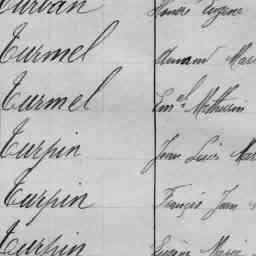 Turban Honoré Eugène
Turmel Armand Mar
Turmel Em.el Mathurin
Turpin Jean Louis Mar
Turpin François Jean
Turpin Eugène Marie